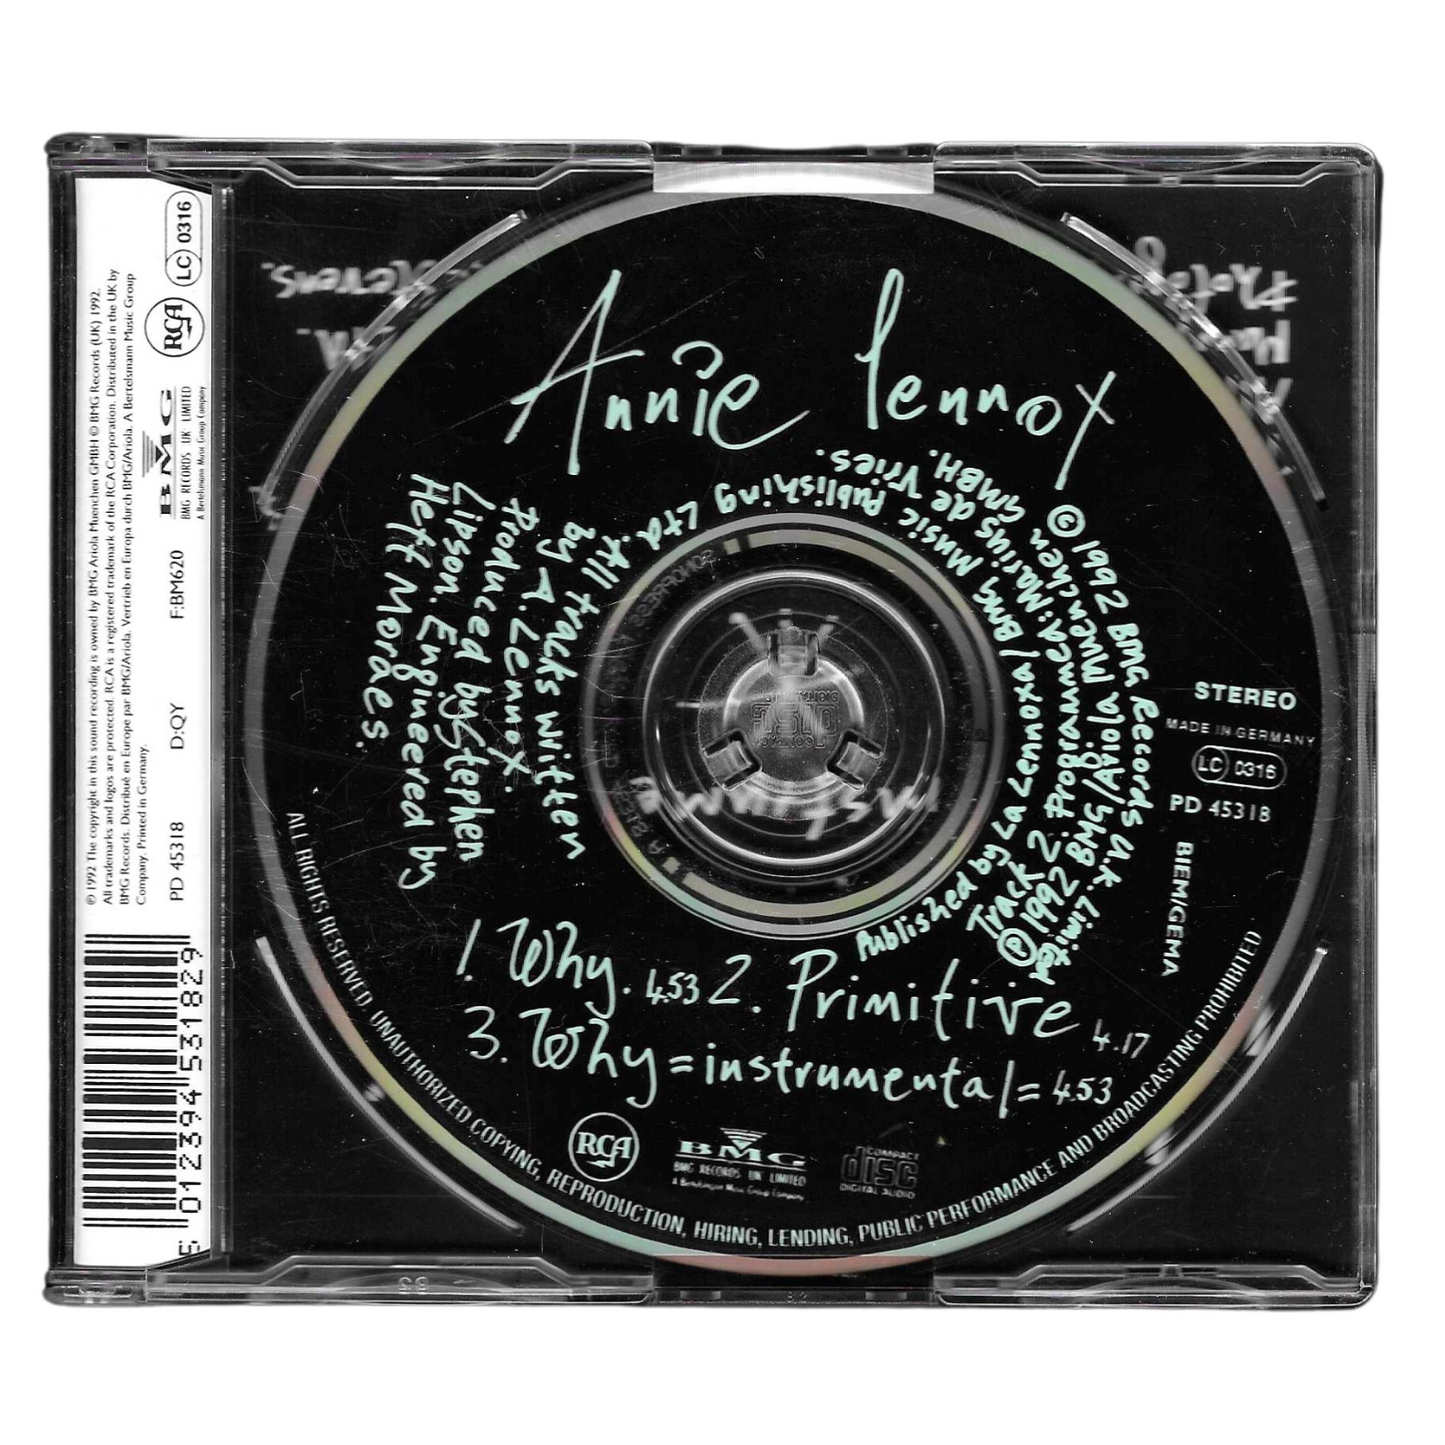 © 1992 The copyright in this sound recording is owned by BMG Ariola Muenchen GMBH © BMG Records (UK) 1992.
All trademarks and logos are protected. RCA is a registered trademark of the RCA Corporation. Distributed in the UK by
BMG Records. Distribué en Europe par BMG/Ariola. Vertrieb en Europa durch BMG/Ariola. A Bertelsmann Music Group
Company. Printed in Germany.
PD 45318 D:QY F:BM620
BMG
BMG RECORDS UK LIMITED
A Bertelsmann Music Group Company
RCA
LC 0316
5 012394 531829
Annie Lennox
1. Why. 4.53 2. Primitive 4.17
3. Why =instrumental= 4.53
All tracks written
by A. Lennox.
Produced by Stephen
Lipson. Engineered by
Heff Moraes.
Published by La Lennoxa/BMG Music Publishing Ltd.
Track 2. Programmer: Marius de Vries.
℗ 1992 BMG/Ariola Muenchen GMBH.
© 1992 BMG Records U.K. Limited
STEREO
MADE IN GERMANY
LC 0316
PD 45318
BIEM/GEMA
RCA
BMG
BMG RECORDS UK LIMITED
A Bertelsmann Music Group Company
COMPACT
disc
DIGITAL AUDIO
ALL RIGHTS RESERVED. UNAUTHORIZED COPYING, REPRODUCTION, HIRING, LENDING, PUBLIC PERFORMANCE AND BROADCASTING PROHIBITED